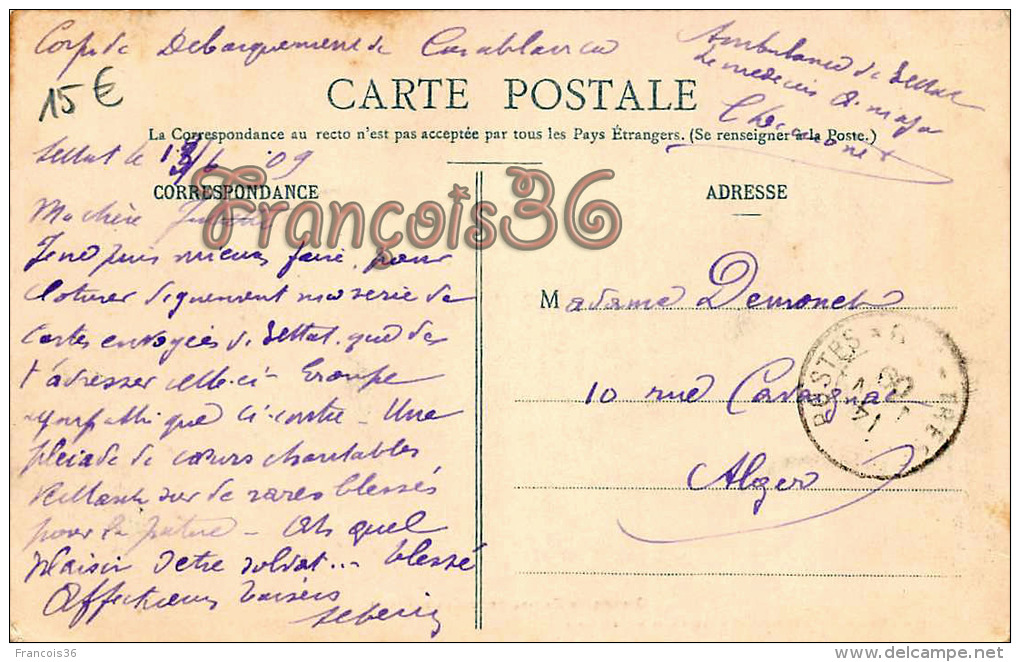 Corps de Debarquement de Casablanca
15 €
Ambulance de Settat
Le medecin a. major
CARTE POSTALE
La Correspondance au recto n'est pas acceptée par tous les Pays Étrangers. (Se renseigner à la Poste.)
Settat le 13/6 09
CORRESPONDANCE
ADRESSE
François36
Ma chère
Je ne puis mieux faire, pour
cloturer dignement ma serie de
cartes envoyées de Settat, que de
t'adresser celle-ci Groupe
sympathique ci-contre - Une
pleiade de cœurs charitables
veillant sur de rares blessés
pour la patrie - Oh quel
plaisir d'etre soldat... blessé
Affectueux baisers
Madame Demonch
10 rue Cavaignac
Alger
POSTES
Francois36
delcampe.net